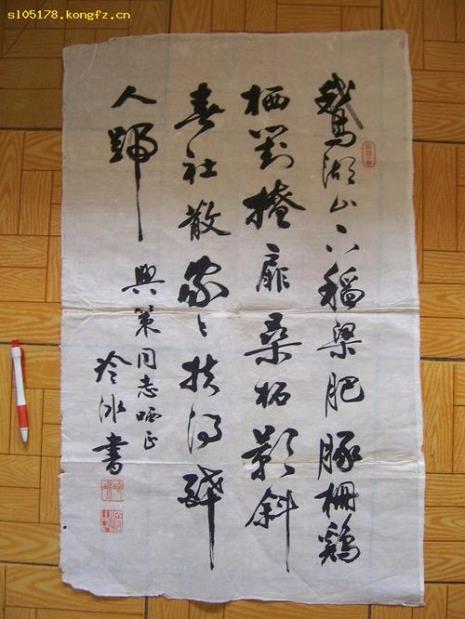 sl05178.kongfz.cn
鵞湖山下稻梁肥豚柵鷄
栖對掩扉桑柘影斜
春社散家々扶得醉
人歸
興策同志哂正
冰書